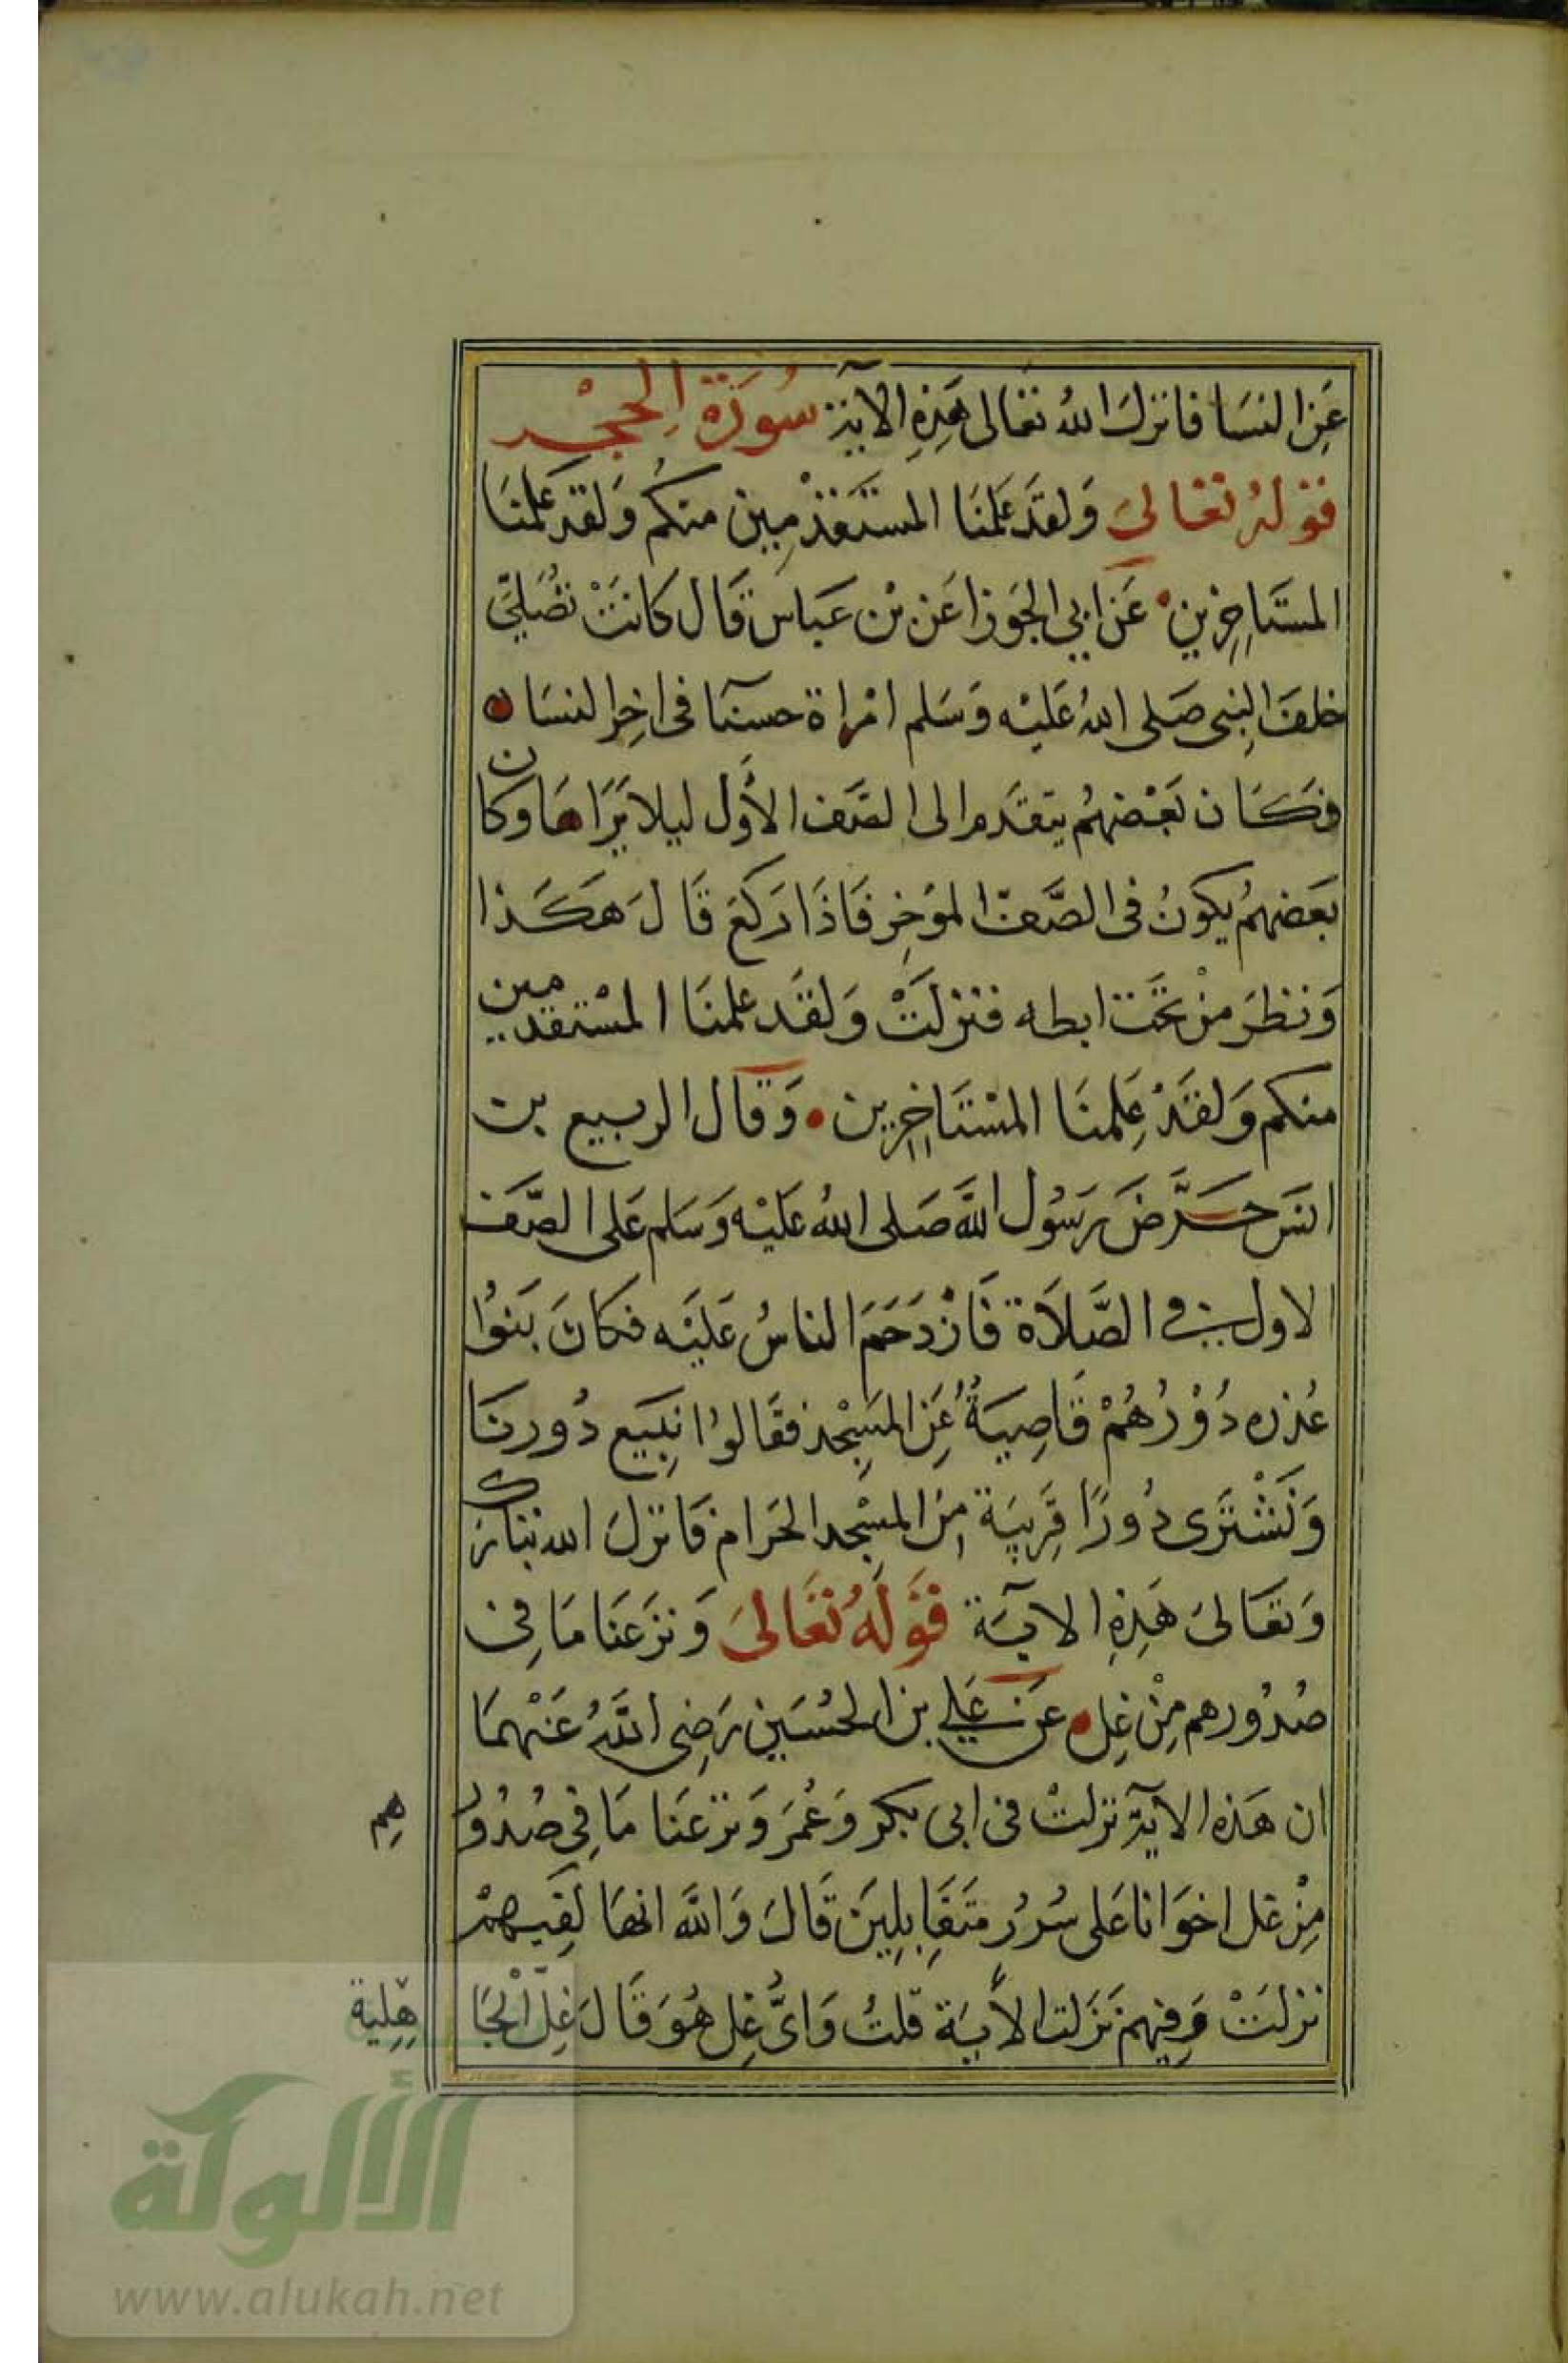 عَنِ النسَا فانزلَ اللهُ تعَالى هَذِهِ الآيَة سُورَة الحِجْر
قوْلهُ تعَالىَ وَلقدَ عَلمنَا المستَقدْمِين منكمُ وَلقَد عَلمنَا
المستَاخِرين عَن ابي الجَوزا عَن بْن عَباس قَال كانتْ تصُلِّي
خلفَ النبِى صَلى اللهُ عَليْه وَسَلم امْراة حسنَآ فى اخِر النسَا
فكَان بَعْضهُم يتقدَم الى الصَف الأول ليلا يَرَاهَا وكان
بَعَضهمُ يكونُ فى الصَّف المؤخِر فَاذَا رَكعَ قَالَ هَكَذا
وَنظرَ مِنْ تحَت ابطه فنزلتْ وَلقَد علمنَا المسْتقدمين
منكم وَلقَدْ عَلِمنَا المسْتَاخِرين وَقال الربيع بن
انسَ حَرَّضَ رَسُول اللَّه صَلى اللهُ عَليْه وَسَلم عَلى الصّف
الاول في الصَّلاَة فَازْدَحَمَ الناسُ عَليَه فكانَ بَنوُا
عُذره دُوْرُهُمْ قَاصِيَةُ عَنِ المسَجْدِ فقَالوُا نبِيَع دُورنَا
وَنَشْتَرَى دُورًا قَرِيبَة مِنَ المسْجِد الحَرَام فَانزلَ الله تبَارك
وَتعَالىَ هَذِهِ الآيَة قَوْلَهُ تعَالىَ وَنزَعنَا مَا فِى
صُدُورهم مِنْ غِل عَن عَلي بن الحُسَين رَضِى اللَّهُ عَنْهمَا
ان هَذه الآيَة نزلتْ فى ابى بكر وَعُمَرَ وَنزعنَا مَا فِي صُدُورهِم
مِنْ غل اخوَانا عَلى سُرُر متَقَابِلِينَ قَالَ وَاللَّه انهَا لَفِيهمْ
نزلتْ وَفِيهِمْ نَزَلت الأيَة قلتُ وَايُّ غِل هُوَ قَالَ غِلّ الْجَاهِلِية
الألوكة
www.alukah.net